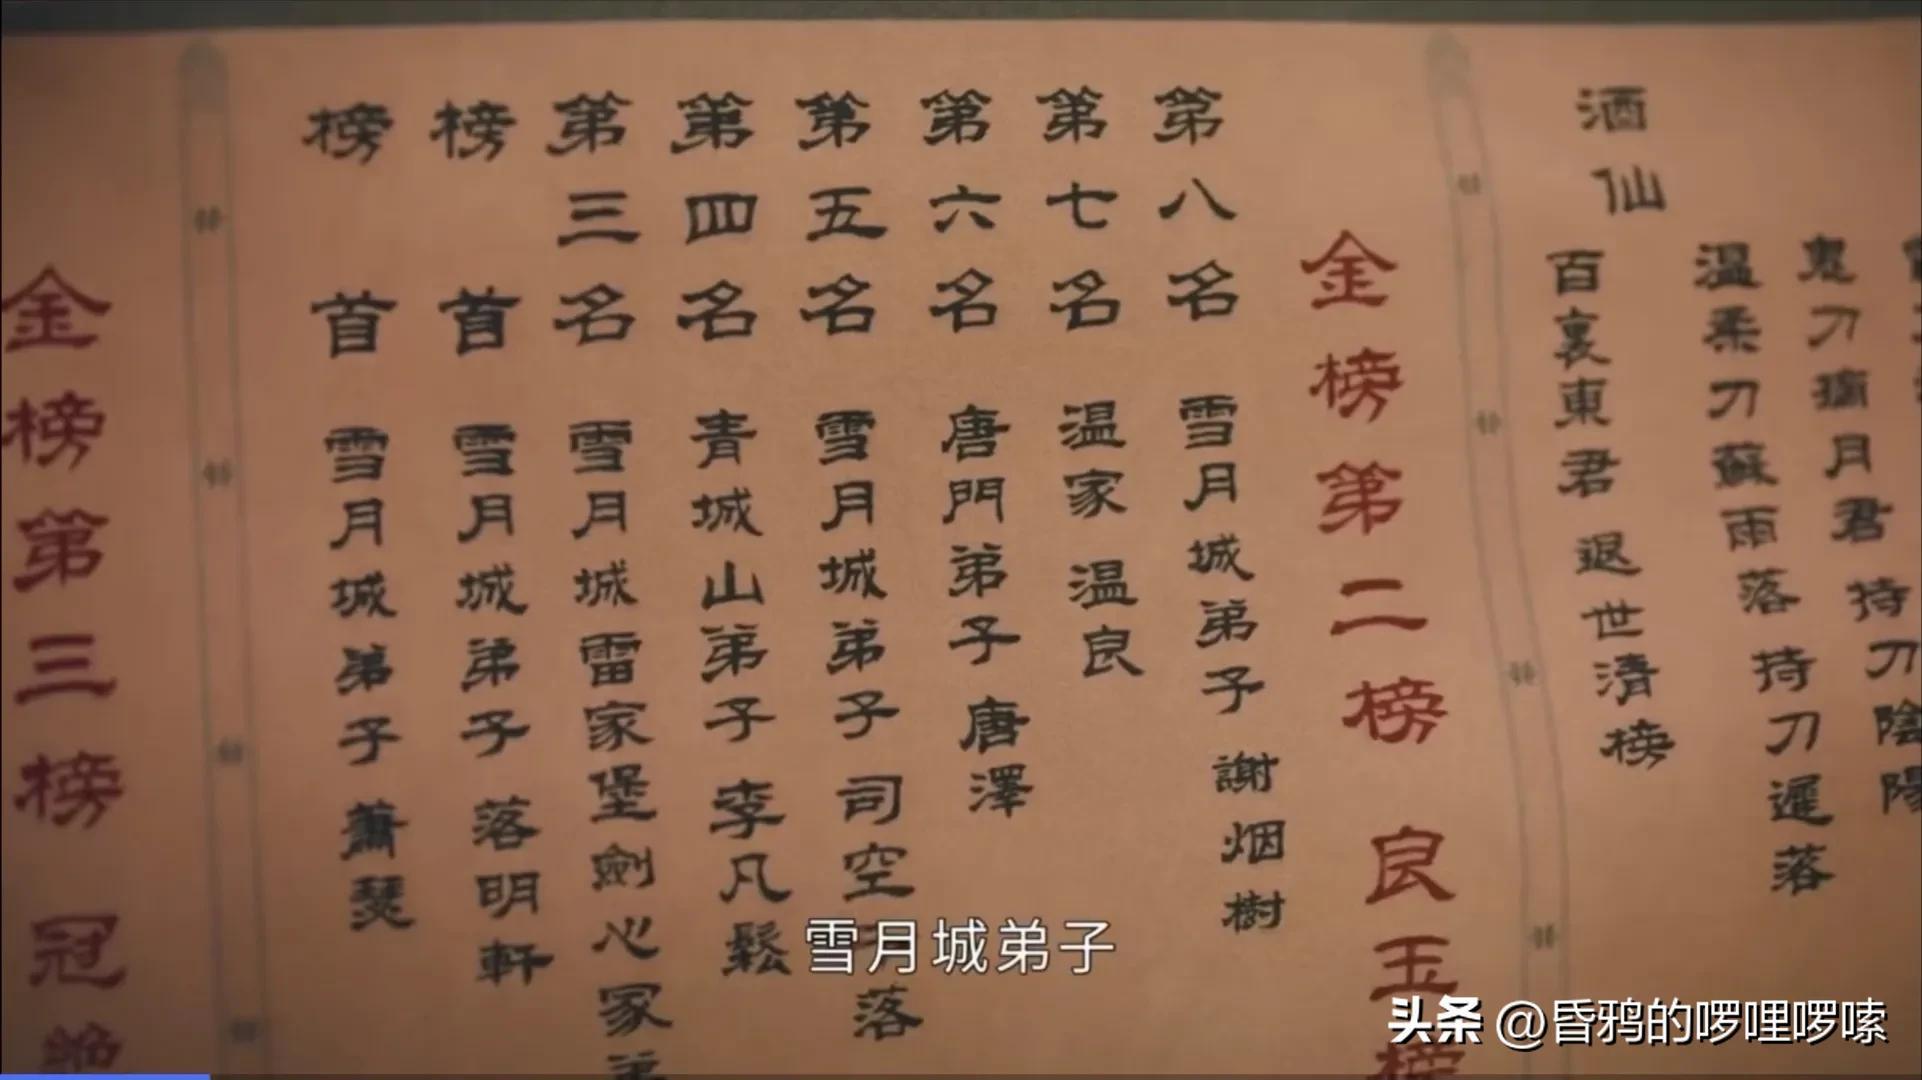 鬼刀 月君 持刀陰陽
溫柔刀蘇雨落 持刀遲落
酒仙 百裏東君 退世清榜
金榜第二榜 良玉榜
第八名 雪月城弟子 謝烟樹
第七名 温家 温良
第六名 唐門弟子 唐澤
第五名 雪月城弟子 司空 落
第四名 青城山弟子 李凡鬆
第三名 雪月城雷家堡劍心冢弟
榜首 雪月城弟子 落明軒
榜首 雪月城弟子 蕭瑟
金榜第三榜 冠絶
雪月城弟子
头条 @昏鸦的啰哩啰嗦